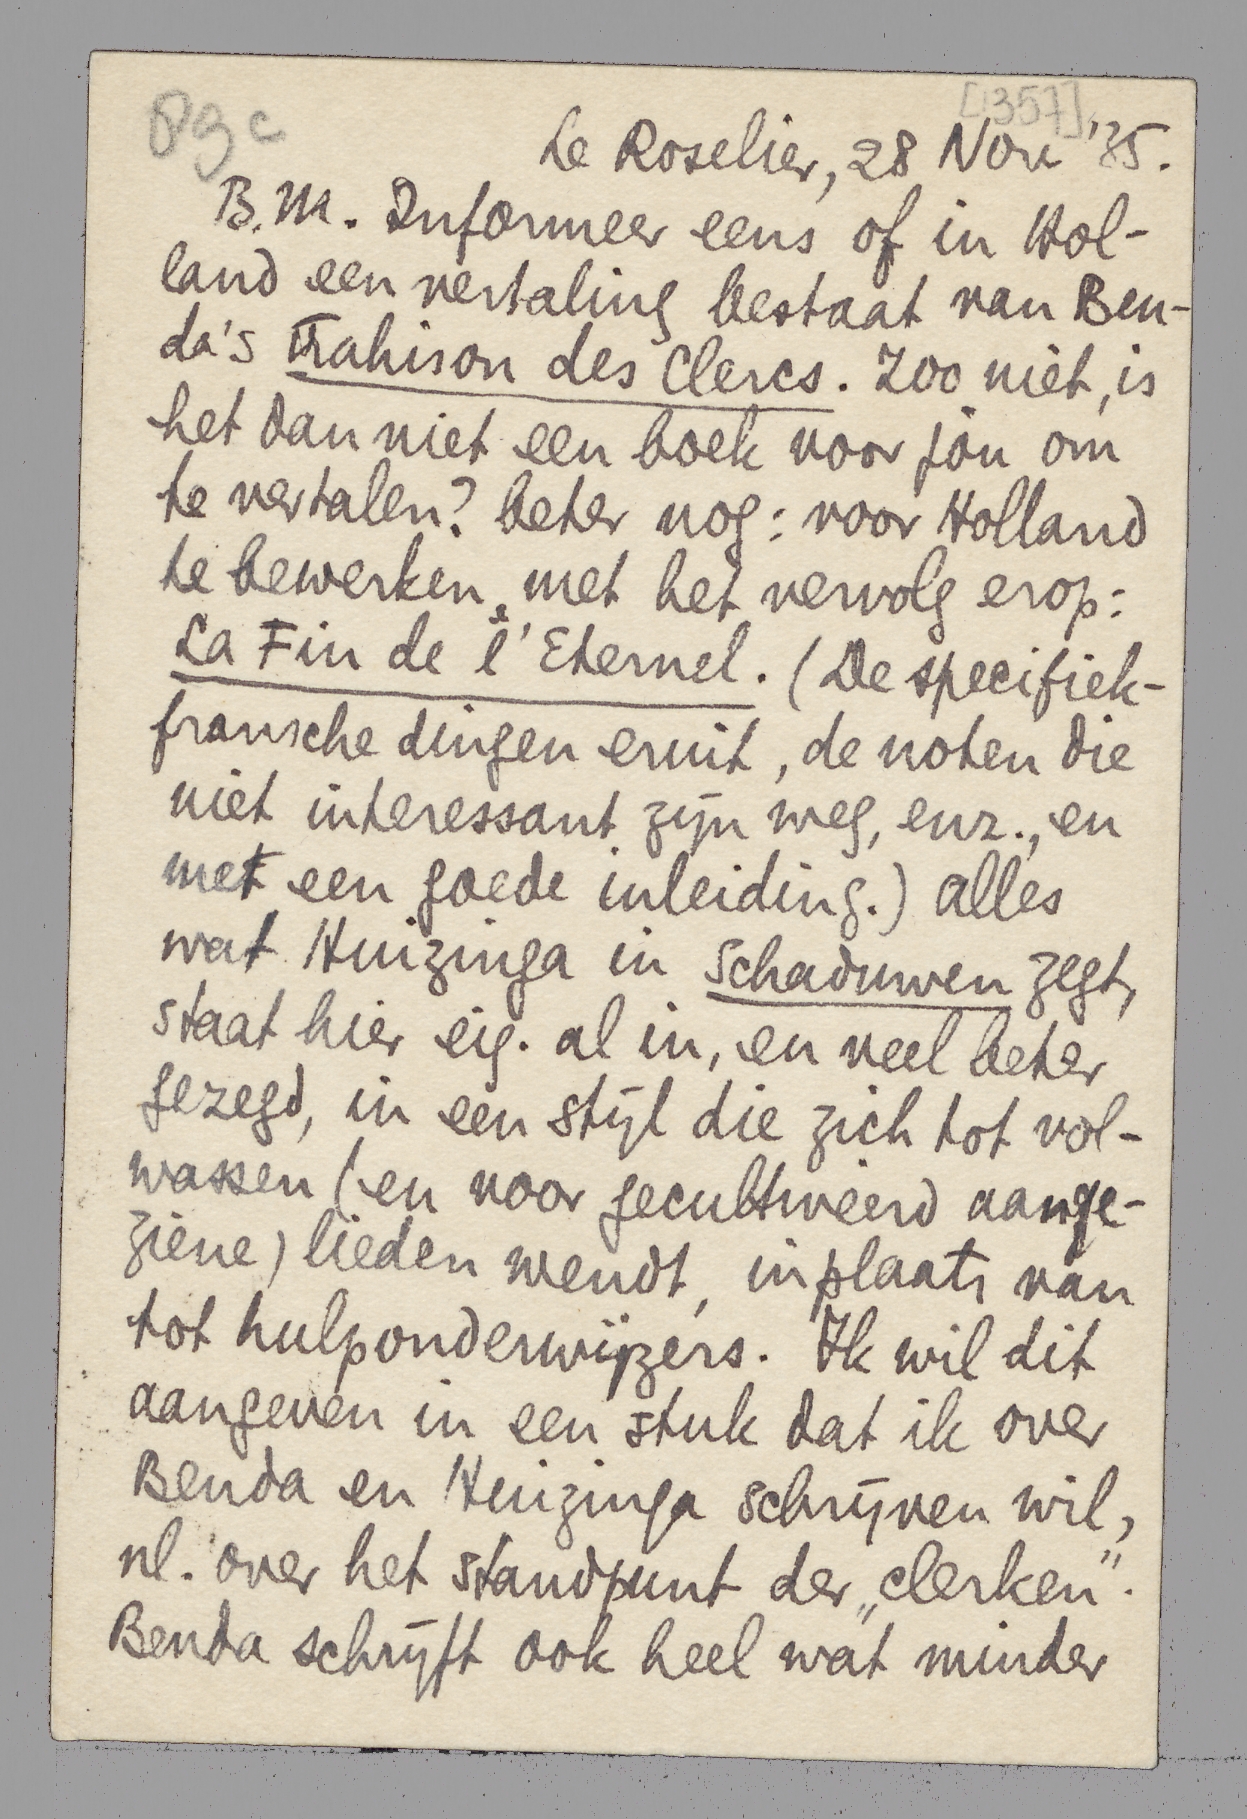 89c
[1357]
Le Roselier, 28 Nov '35.
B.M. Informeer eens of in Hol-
land een vertaling bestaat van Ben-
da's Trahison des Clercs. Zoo niet, is
het dan niet een boek voor jou om
te vertalen? beter nog: voor Holland
te bewerken, met het vervolg erop:
La Fin de l'Eternel. (De specifiek-
fransche dingen eruit, de noten die
niet interessant zijn weg, enz., en
met een goede inleiding.) Alles
wat Huizinga in Schaduwen zegt,
staat hier eig. al in, en veel beter
gezegd, in een stijl die zich tot vol-
wassen (en voor gecultiveerd aange-
ziene) lieden wendt, inplaats van
tot hulponderwijzers. Ik wil dit
aangeven in een stuk dat ik over
Benda en Huizinga schrijven wil,
nl. over het standpunt der „clerken".
Benda schrijft ook heel wat minder